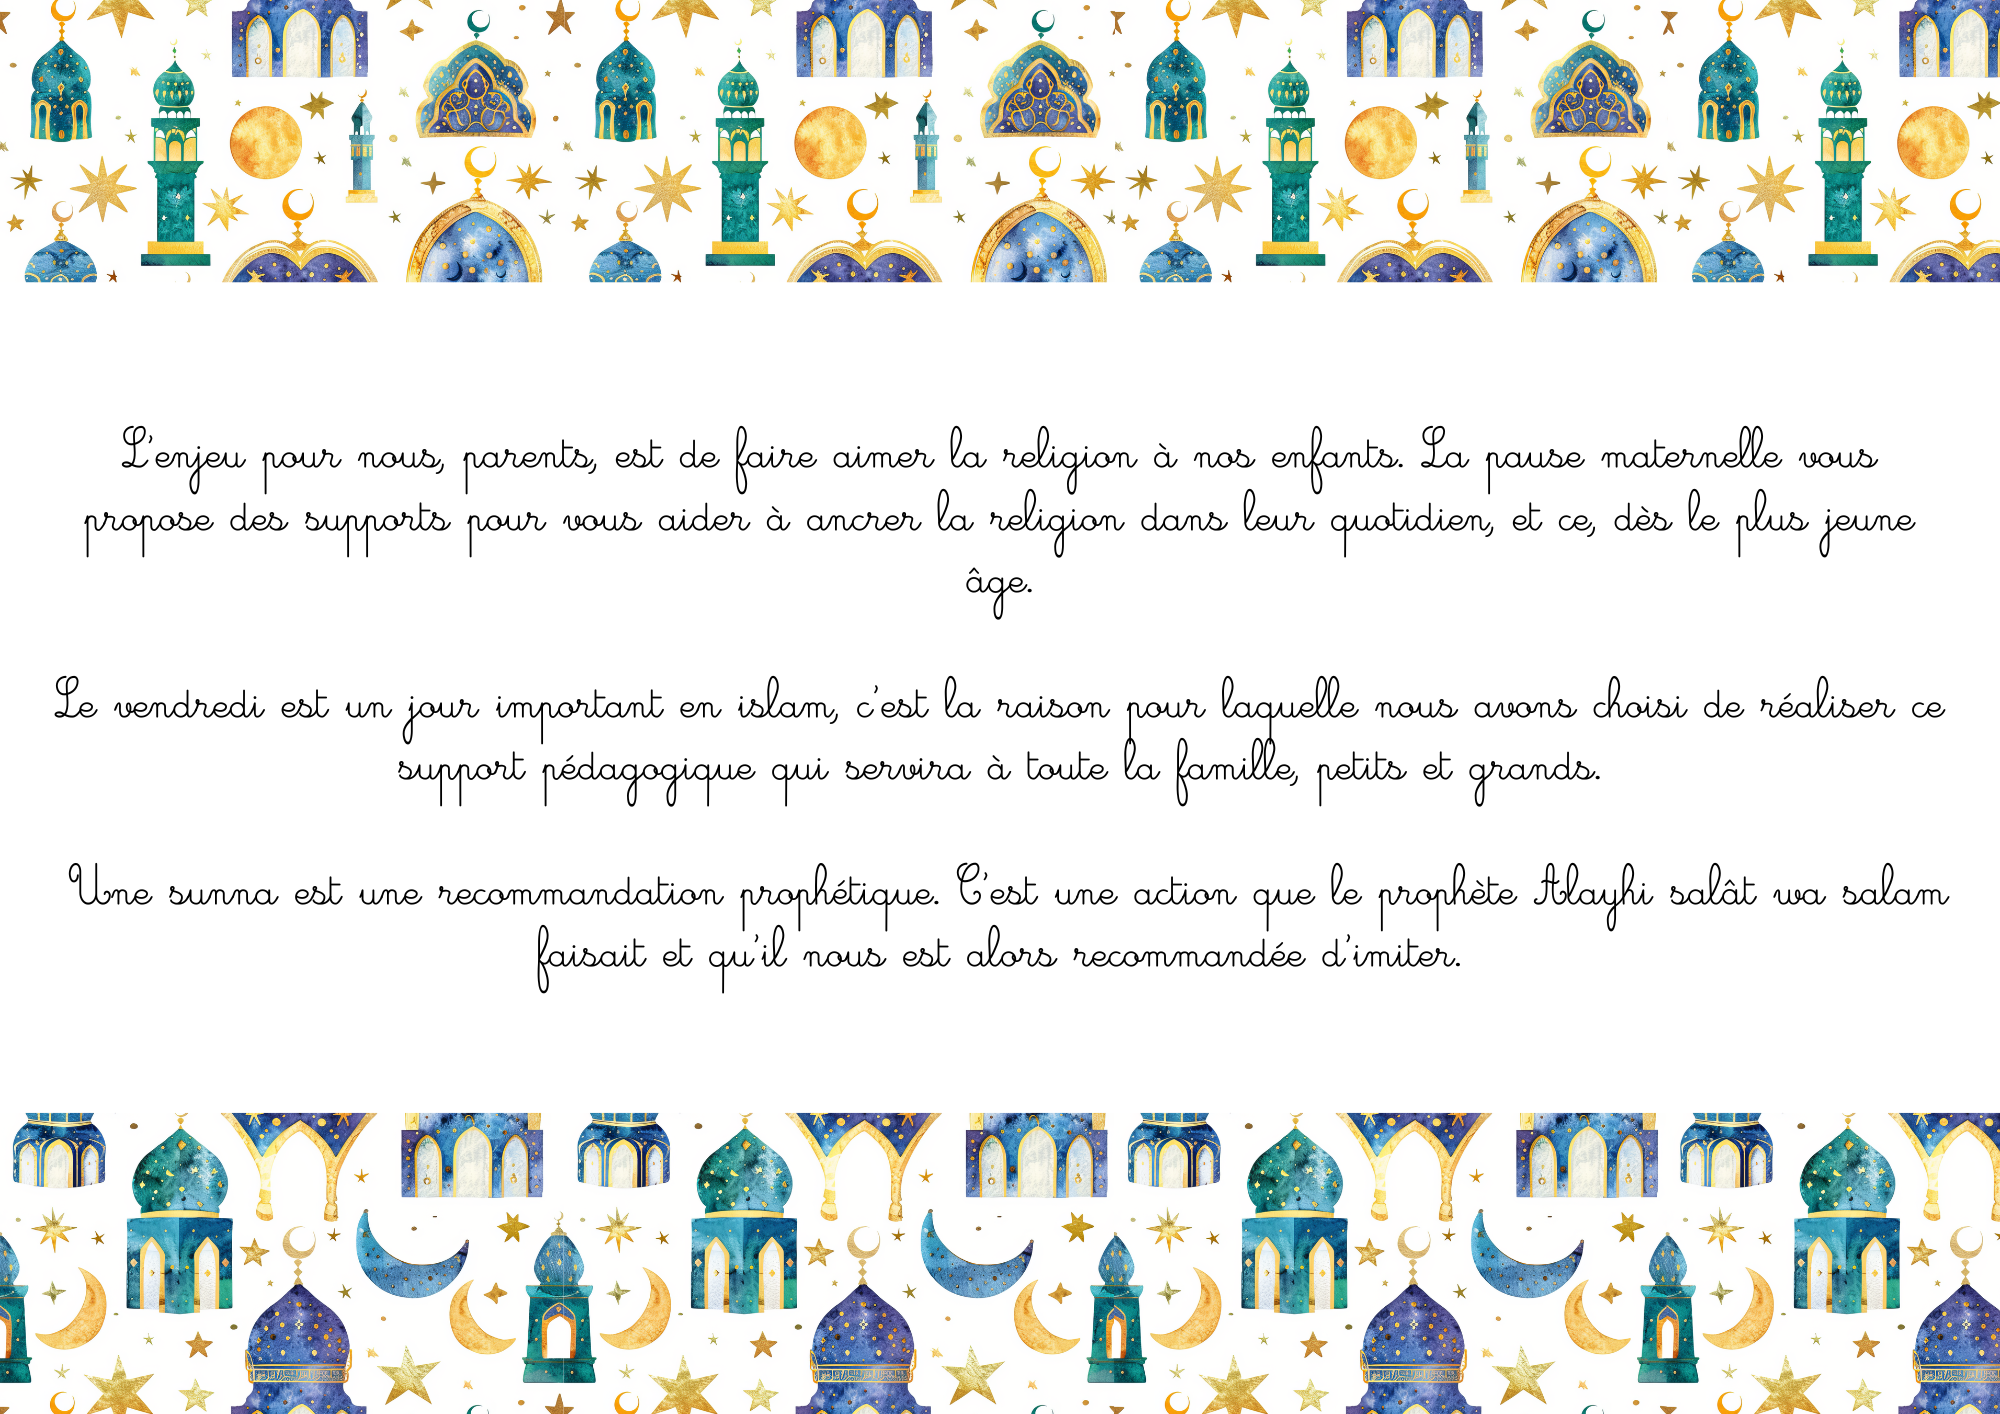 L'enjeu pour nous, parents, est de faire aimer la religion à nos enfants. La pause maternelle vous
propose des supports pour vous aider à ancrer la religion dans leur quotidien, et ce, dès le plus jeune
âge.
Le vendredi est un jour important en islam, c'est la raison pour laquelle nous avons choisi de réaliser ce
support pédagogique qui servira à toute la famille, petits et grands.
Une sunna est une recommandation prophétique. C'est une action que le prophète Alayhi salât wa salam
faisait et qu'il nous est alors recommandée d'imiter.